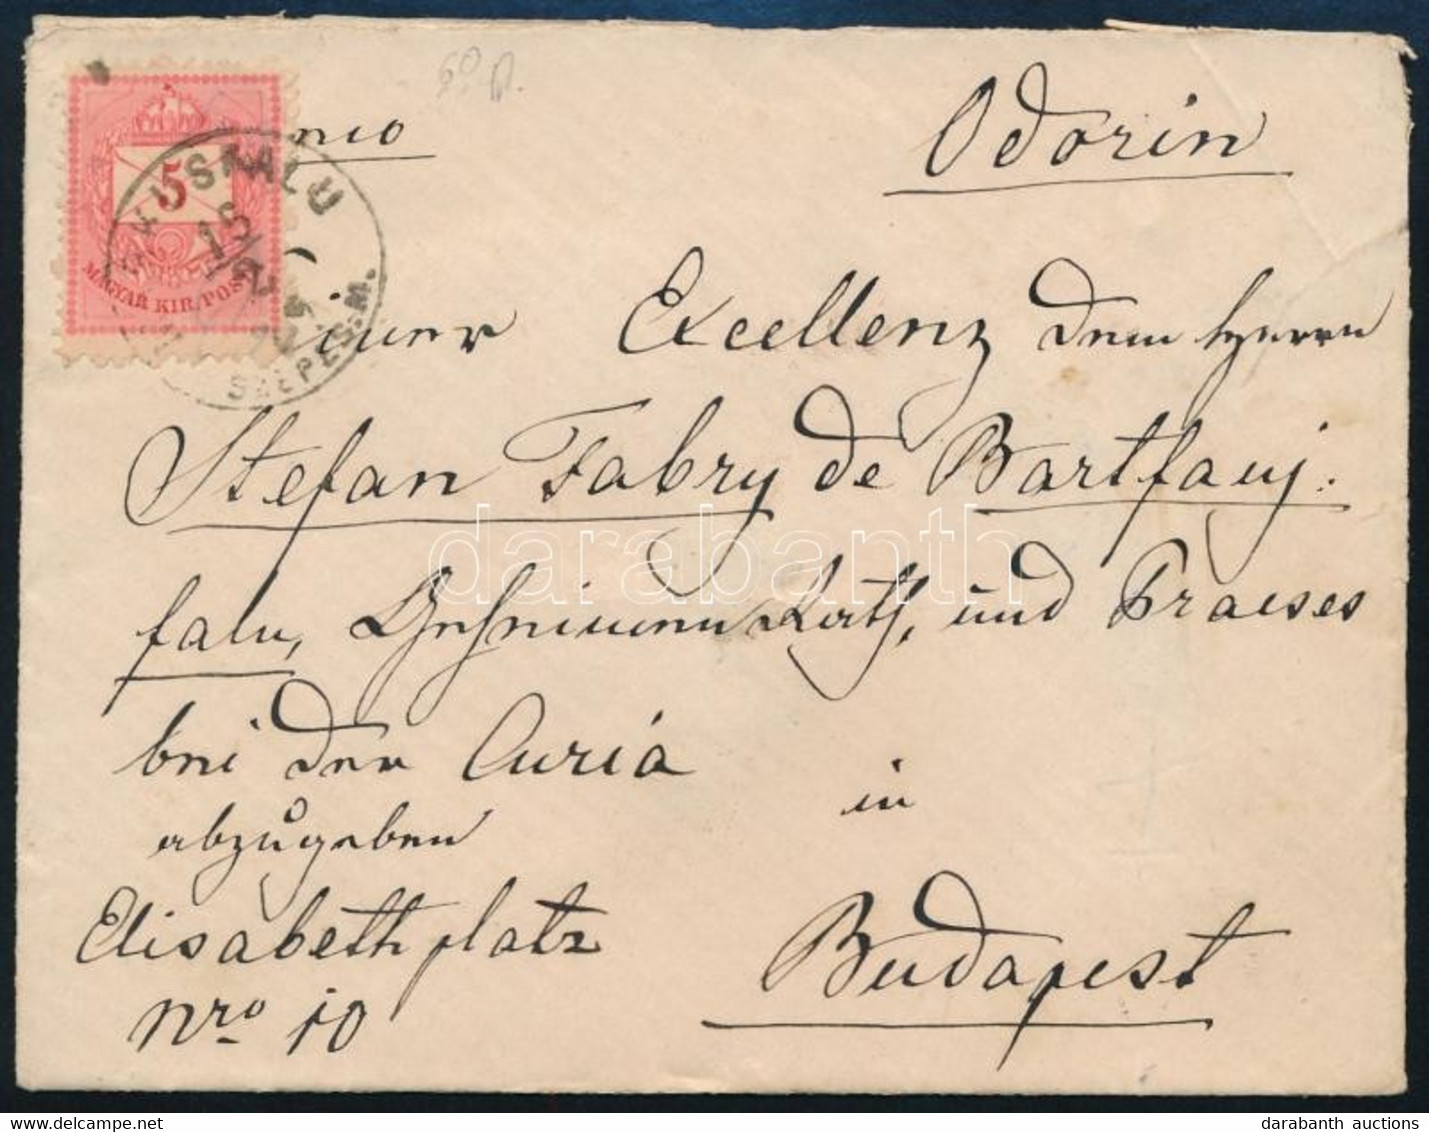 60 
nio Odorin
5
MAGYAR KIR. POS
SAALU
15/2
SZEPES.M.
iner Excellenz dem Herrn
Stefan Fabry de Bartfauj.
falu, Geheimen Rath, und Praeses
bei der Curia
abzugeben in
Elisabethplatz
Nro 10 Budapest
darabanth
darabanth auctions